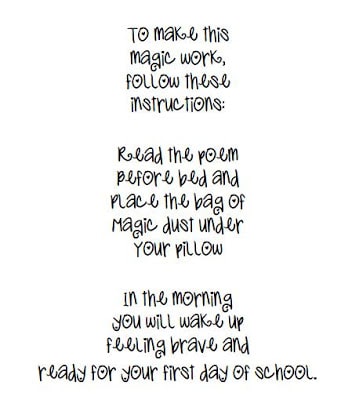 To make this
magic work,
follow these
instructions:
Read the poem
before bed and
place the bag of
magic dust under
your pillow
In the morning
you will wake up
feeling brave and
ready for your first day of school.